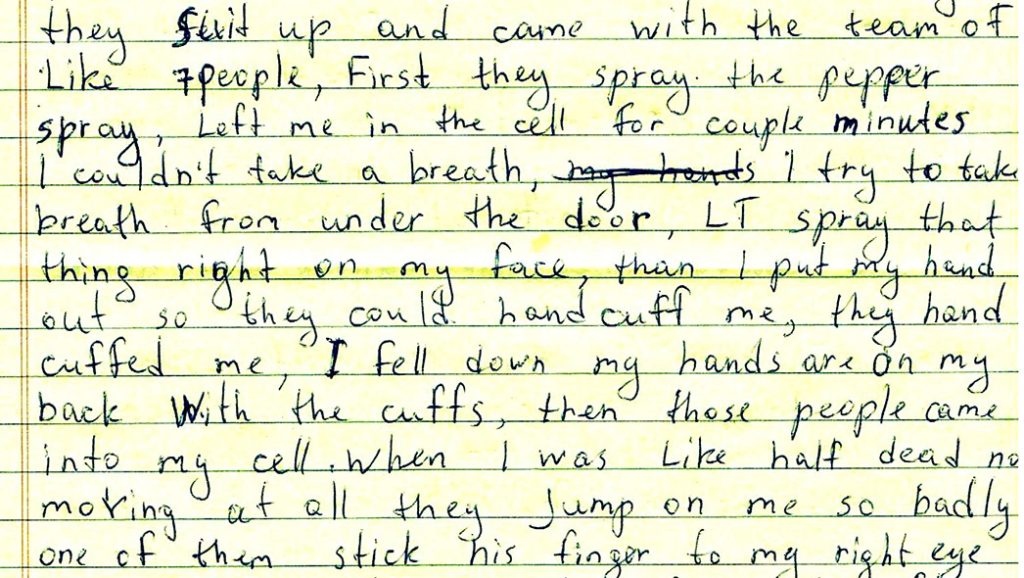 they suit up and came with the team of
Like 7people, First they spray the pepper
spray, Left me in the cell for couple minutes
I couldn't take a breath, my hands I try to take
breath from under the door, LT spray that
thing right on my face, than I put my hand
out so they could hand cuff me, they hand
cuffed me, I fell down my hands are on my
back With the cuffs, then those people came
into my cell. When I was Like half dead no
moving at all they Jump on me so badly
one of them stick his finger to my right eye